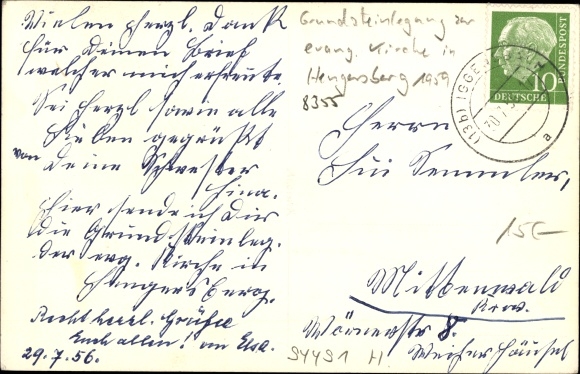 Vielen herzl. Dank
für Deinen Brief
welcher mich erfreute.
Sei herzl sowie alle
Lieben gegrüßt
von Deine Schwester
Lina.
Hier sende ich Dir
die Grundsteinleg.
der evg. Kirche in
Hengersberg.
Recht herzl. Grüße
Euch allen! von Elsa.
29.7.56.
Grundsteinlegung der
evang. Kirche in
Hengersberg 1959
8355
10
DEUTSCHE
BUNDESPOST
(13b) IGGE
a
Herrn
Semmler,
15€
Mittenwald
Wörnerstr 8.
94491 H